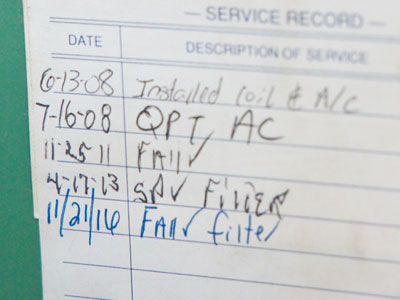 — SERVICE RECORD —
DATE DESCRIPTION OF SERVICE
6-13-08 Installed Coil & A/C
7-16-08 QPT, AC
11-25 11 FAll✓
4-17-13 Filter
11/21/16 FAll✓ filter